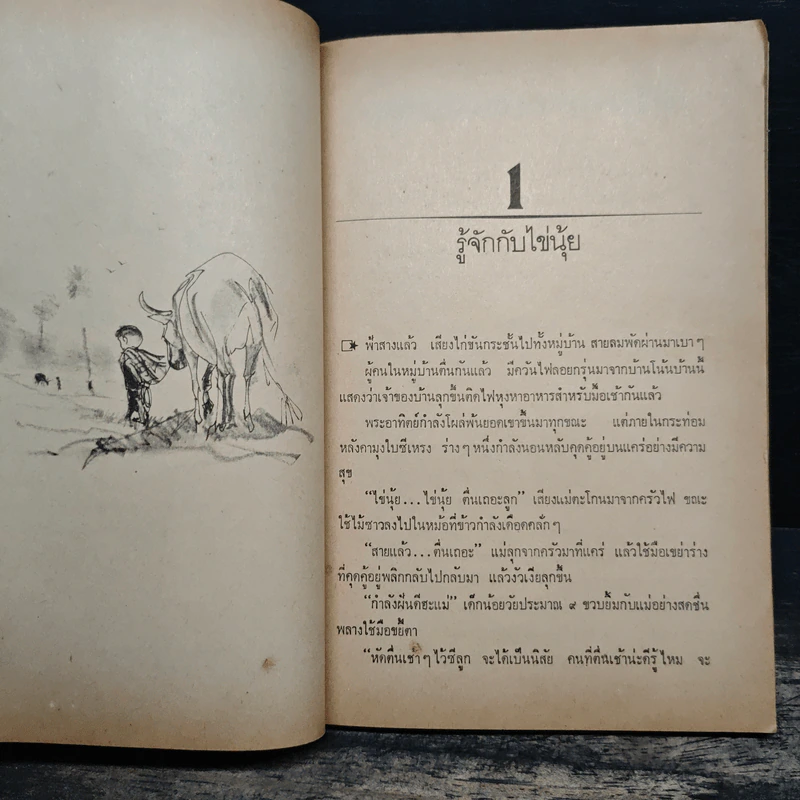 1
รู้จักกับไข่นุ้ย
ฟ้าสางแล้ว เสียงไก่ขันกระชั้นไปทั้งหมู่บ้าน สายลมพัดผ่านมาเบาๆ
ผู้คนในหมู่บ้านตื่นกันแล้ว มีควันไฟลอยกรุ่นมาจากบ้านโน้นบ้านนี้
แสดงว่าเจ้าของบ้านลุกขึ้นติดไฟหุงหาอาหารสำหรับมื้อเช้ากันแล้ว
พระอาทิตย์กำลังโผล่พ้นยอดเขาขึ้นมาทุกขณะ แต่ภายในกระท่อม
หลังคามุงใบซีเหรง ร่างๆ หนึ่งกำลังนอนหลับคุดคู้อยู่บนแคร่อย่างมีความ
สุข
“ไข่นุ้ย...ไข่นุ้ย ตื่นเถอะลูก” เสียงแม่ตะโกนมาจากครัวไฟ ขณะ
ใช้ไม้ซาวลงไปในหม้อที่ข้าวกำลังเดือดคลั่กๆ
“สายแล้ว...ตื่นเถอะ” แม่ลุกจากครัวมาที่แคร่ แล้วใช้มือเขย่าร่าง
ที่คุดคู้อยู่พลิกกลับไปกลับมา แล้วงัวเงียลุกขึ้น
“กำลังฝันดีฮะแม่” เด็กน้อยวัยประมาณ ๙ ขวบยิ้มกับแม่อย่างสดชื่น
พลางใช้มือขยี้ตา
“หัดตื่นเช้าๆ ไว้ซีลูก จะได้เป็นนิสัย คนที่ตื่นเช้าน่ะดีรู้ไหม จะ